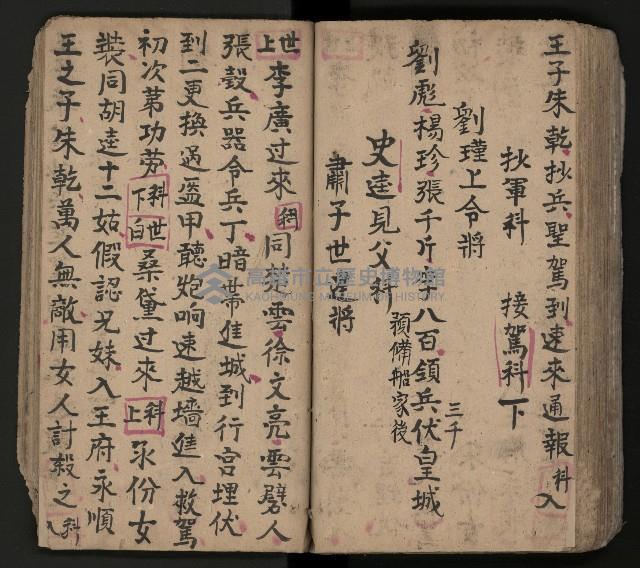 王子朱乾抄兵聖駕到速來通報科入
抄軍科 接駕科下
劉瑾上令將
劉彪楊珍張千斤李八百領兵伏皇城
三千
史達見父科
預備船家後
肅子世 將
世上李廣过來科同 雲徐文亮雲 人
張殼兵器令兵丁暗帶進城到行宮埋伏
到二更換过盔甲聽炮响速越墻進入救駕
初次第功劳科下世白桑黛过來科上 份女
裝同胡逵十二姑假認兄妹入王府永順
王之子朱乾萬人無敵用女人討殺之科入
高雄市立歷史博物館
KAOHSIUNG MUSEUM OF HISTORY